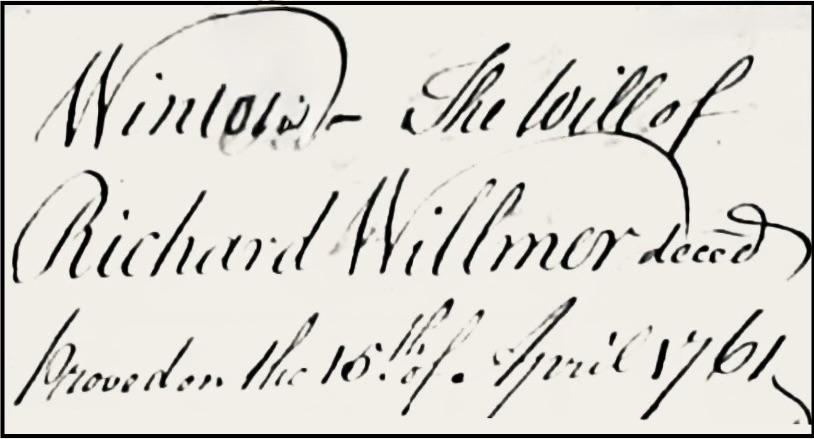 The Will of
Richard Willmor decēd
proved on the 15th of April 1761